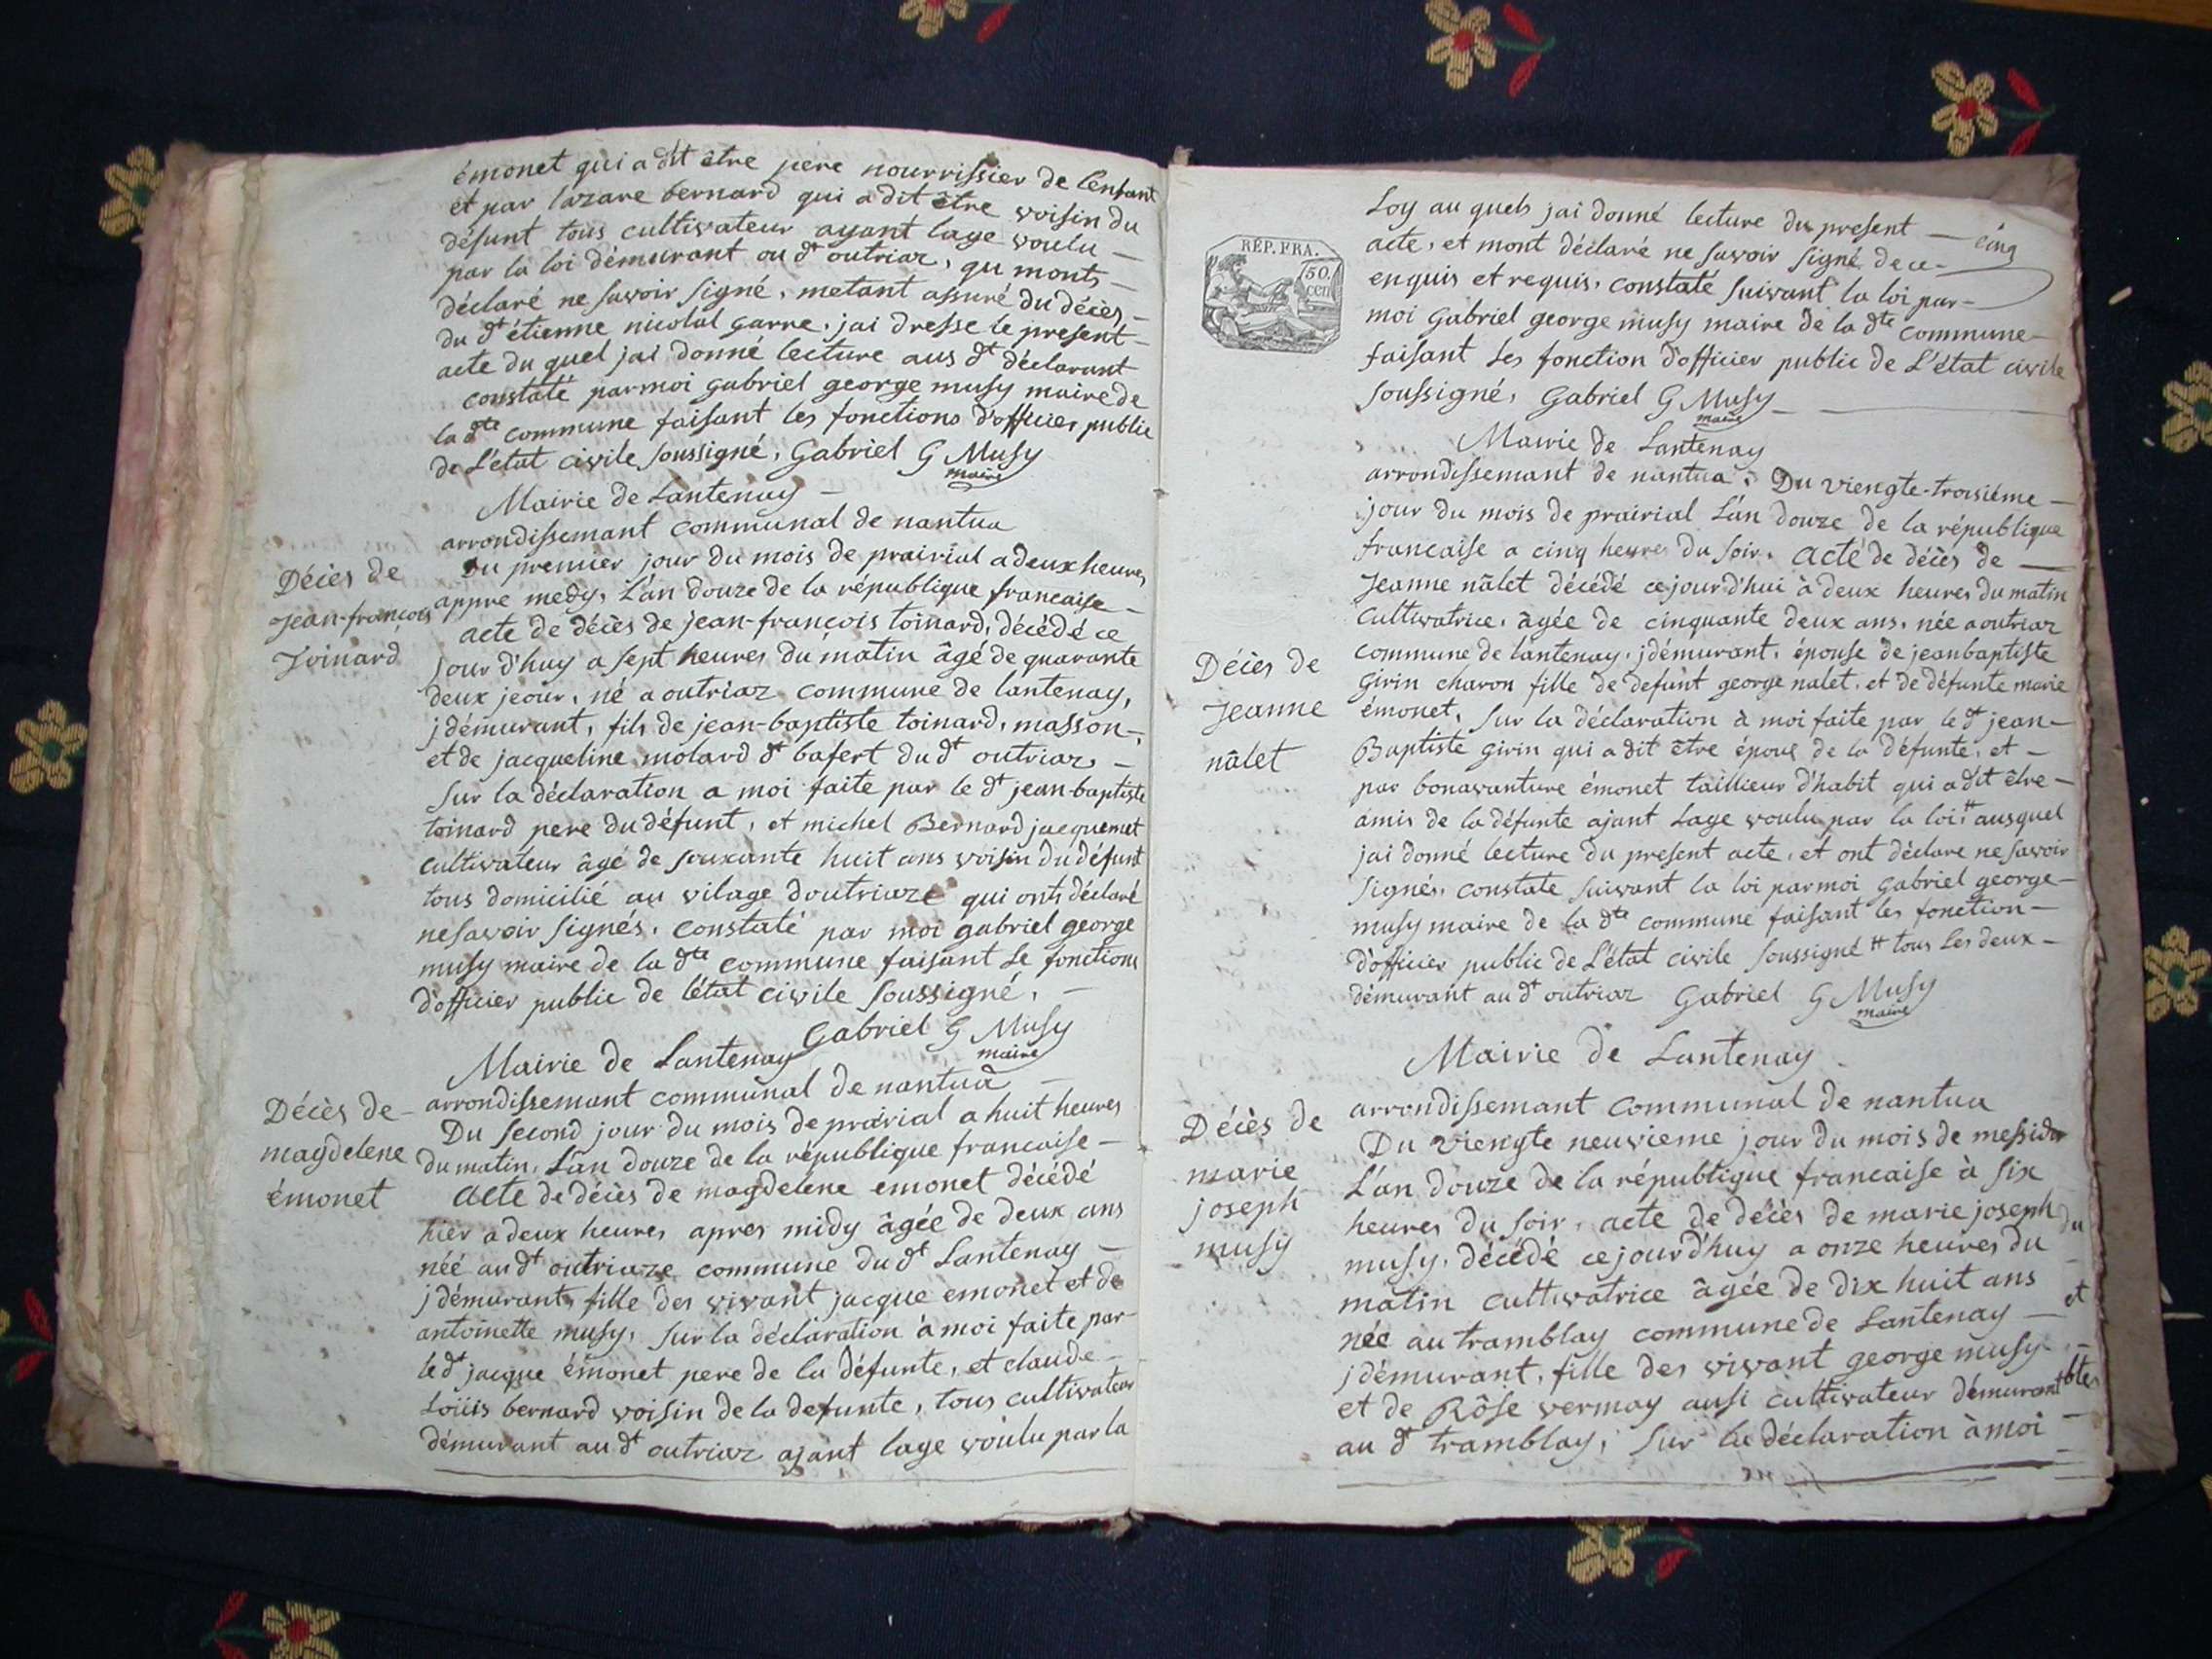 émonet qui a dit être pere nourrissier de lenfant
et par lazare bernard qui a dit être voisin du
défunt tous cultivateur ayant lage voulu —
par la loi démurant au dt outriaz, qui monts —
déclaré ne savoir signé, metant assuré du décès —
du dt étienne nicolal garre, jai dresse le present —
acte du quel jai donné lecture aus dt déclarant
constaté par moi gabriel george musy maire de
la dte commune faisant les fonctions d'officier public
de L'état civile soussigné, Gabriel G Musy
maire
Mairie de Lantenay —
arrondissemant communal de nantua
Décès de
Jean-françois
Toinard
Du premier jour du mois de prairial a deux heures
appre medy, L'an douze de la république francaise —
acte de décès de jean-françois toinard, décédé ce
jour d'huy a sept heures du matin âgé de quarante
deux jeour, né a outriaz commune de lantenay,
j démurant, fils de jean-baptiste toinard, masson —
et de jacqueline molard dt bafert du dt outriaz, —
Sur la déclaration a moi faite par le dt jean-baptiste
toinard pere du défunt, et michel Bernard jacquemet
cultivateur âgé de souxante huit ans voisin du défunt
tous domicilié au vilage doutriaze qui onts déclaré
ne savoir signés, constaté par moi gabriel george
musy maire de la dte commune faisant le fonctions
d'officier public de l'état civile soussigné, —
Gabriel G Musy
maire
Mairie de Lantenay
arrondissemant communal de nantua —
Décès de —
magdelene
émonet
Du second jour du mois de prairial a huit heures
du matin, L'an douze de la république francaise —
acte de décès de magdelene emonet décédé
hier a deux heures apres midy âgée de deux ans
néé au dt outriaze commune du dt Lantenay —
j démurant, fille des vivant jacque emonet et de
antoinette musy, sur la déclaration à moi faite par —
le dt jacque émonet pere de la défunte, et claude —
Loüis bernard voisin de la defunte, tous cultivateur
démurant au dt outriaz ajant lage voulu par la
RÉP. FRA.
50.
cen
cinq
Loy au quels jai donné lecture du present —
acte, et mont déclaré ne savoir signé de ce —
enquis et requis, constaté suivant la loi par —
moi Gabriel george musy maire de la dte commune —
faisant les fonction d'officier public de L'état civile
soussigné, Gabriel G Musy —
maire
Mairie de Lantenay
arrondissemant de nantua. Du viengte-troisiéme —
jour du mois de prairial L'an douze de la république
francaise a cinq heures du soir, acte de décès de —
Jeanne nâlet décédé ce jourd'hui à deux heures du matin
cultivatrice, âgée de cinquante deux ans, née a outriaz
Décès de
Jeanne
nâlet
commune de lantenay, j démurant, épouse de jean baptiste
Girin charon fille de defunt george nalet, et de défunte marie
émonet, Sur la déclaration à moi faite par le dt jean —
Baptiste girin qui a dit être époux de la défunte, et —
par bonavanture émonet taillieur d'habit qui a dit être —
amis de la défunte ajant Lage voulu par la loi # ausquel
jai donné lecture du present acte, et ont déclare ne savoir
signés, constate suivant la loi par moi gabriel george —
musy maire de la dte commune faisant les fonction —
d'officier public de L'état civile soussigné # tous les deux —
démurant au dt outriaz Gabriel G Musy
maire
Mairie de Lantenay
arrondissemant communal de nantua
Décès de
marie
joseph
musy
Du viengte neuvieme jour du mois de messidor
L'an douze de la république francaise à six
heures du soir, acte de décès de marie joseph
musy, décédé ce jourd'huy a onze heures du
matin cultivatrice âgée de dix huit ans
née au tramblay commune de Lantenay —
j démurant, fille des vivant george musy
et de Rôse vermay ausi cultivateur démurant
au dt tramblay, Sur la déclaration à moi
du
et